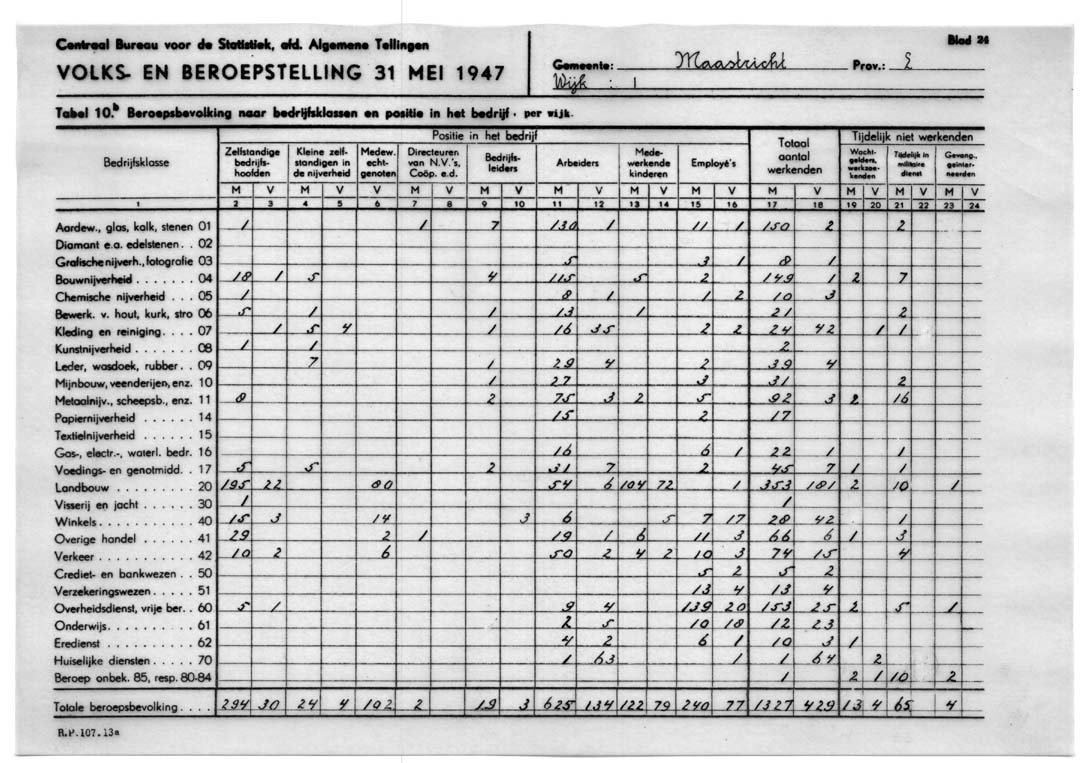 Centraal Bureau voor de Statistiek, afd. Algemene Tellingen
VOLKS- EN BEROEPSTELLING 31 MEI 1947
Blad 24
Gemeente: Maastricht Prov.: E
Wijk : 1
Tabel 10.b Beroepsbevolking naar bedrijfsklassen en positie in het bedrijf, per wijk.
Bedrijfsklasse
Positie in het bedrijf
Totaal aantal werkenden
Tijdelijk niet werkenden
Zelfstandige bedrijfshoofden
Kleine zelfstandigen in de nijverheid
Medew. echtgenoten
Directeuren van N.V.'s, Coöp. e.d.
Bedrijfsleiders
Arbeiders
Medewerkende kinderen
Employé's
Wachtgelders, werkzoekenden
Tijdelijk in militaire dienst
Gevang., geïnterneerden
M V M V V M V M V M V M V M V M V M V M V M V
1 2 3 4 5 6 7 8 9 10 11 12 13 14 15 16 17 18 19 20 21 22 23 24
Aardew., glas, kalk, stenen 01 1 1 7 130 1 11 1 150 2 2
Diamant e.a. edelstenen . . 02
Grafische nijverh., fotografie 03 5 3 1 8 1
Bouwnijverheid . . . . . . 04 18 1 5 4 115 5 2 149 1 2 7
Chemische nijverheid . . . 05 1 8 1 1 2 10 3
Bewerk. v. hout, kurk, stro 06 5 1 1 13 1 21 2
Kleding en reiniging . . . . 07 1 5 4 1 16 35 2 2 24 42 1 1
Kunstnijverheid . . . . . . . 08 1 1 2
Leder, wasdoek, rubber . . 09 7 1 29 4 2 39 4
Mijnbouw, veenderijen, enz. 10 1 27 3 31 2
Metaalnijv., scheepsb., enz. 11 8 2 75 3 2 5 92 3 2 16
Papiernijverheid . . . . . . 14 15 2 17
Textielnijverheid . . . . . . 15
Gas-, electr.-, waterl. bedr. 16 16 6 1 22 1 1
Voedings- en genotmidd. . 17 5 5 2 31 7 2 45 7 1 1
Landbouw . . . . . . . . . 20 195 22 80 54 6 104 72 1 353 181 2 10 1
Visserij en jacht . . . . . . 30 1 1
Winkels . . . . . . . . . . . 40 15 3 14 3 6 5 7 17 28 42 1
Overige handel . . . . . . . 41 29 2 1 19 1 6 11 3 66 6 1 3
Verkeer . . . . . . . . . . . 42 10 2 6 50 2 4 2 10 3 74 15 4
Crediet- en bankwezen . . 50 5 2 5 2
Verzekeringswezen . . . . . 51 13 4 13 4
Overheidsdienst, vrije ber. . 60 5 1 9 4 139 20 153 25 2 5 1
Onderwijs . . . . . . . . . . 61 2 5 10 18 12 23
Eredienst . . . . . . . . . . 62 4 2 6 1 10 3 1
Huiselijke diensten . . . . . 70 1 63 1 1 64 2
Beroep onbek. 85, resp. 80-84 1 2 1 10 2
Totale beroepsbevolking . . . . 294 30 24 4 102 2 19 3 625 134 122 79 240 77 1327 429 13 4 65 4
R.P. 107.13a